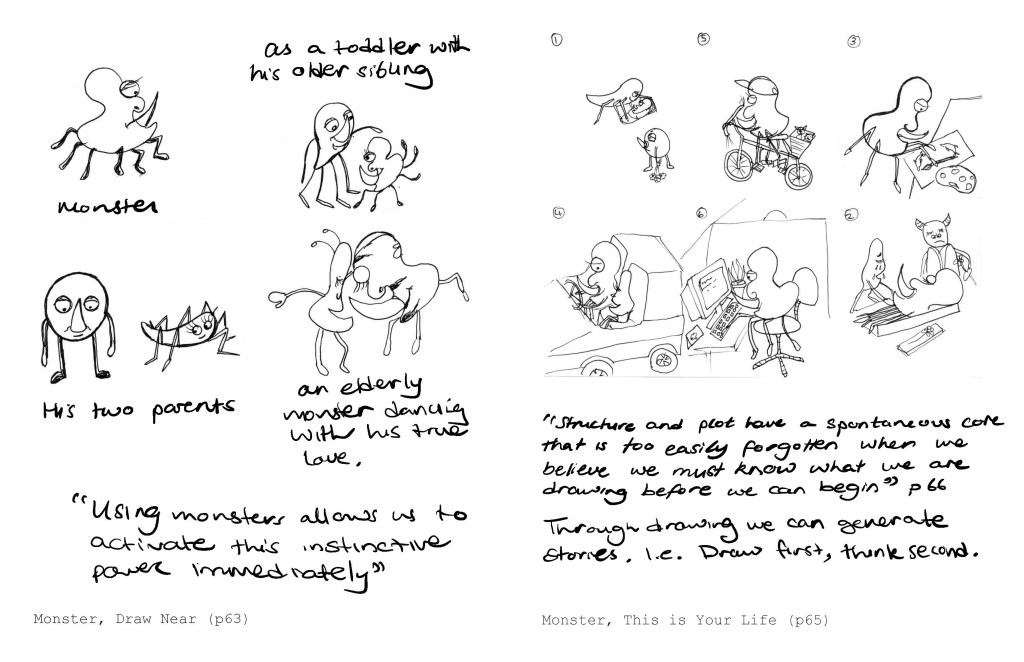 as a toddler with
his older sibling
monster
His two parents
an elderly
monster dancing
with his true
love.
"Using monsters allows us to
activate this instinctive
power immediately"
Monster, Draw Near (p63)
1
5
3
4
6
2
"Structure and plot have a spontaneous core
that is too easily forgotten when we
believe we must know what we are
drawing before we can begin" p66
Through drawing we can generate
stories. I.e. Draw first, think second.
Monster, This is Your Life (p65)